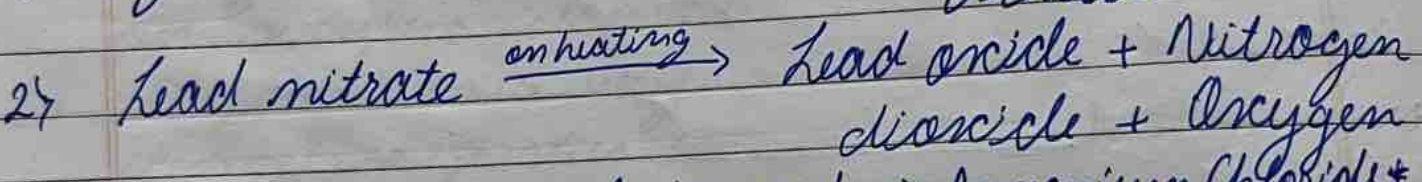 2) Lead nitrate on heating → Lead oxide + Nitrogen
dioxide + Oxygen
Chloride +